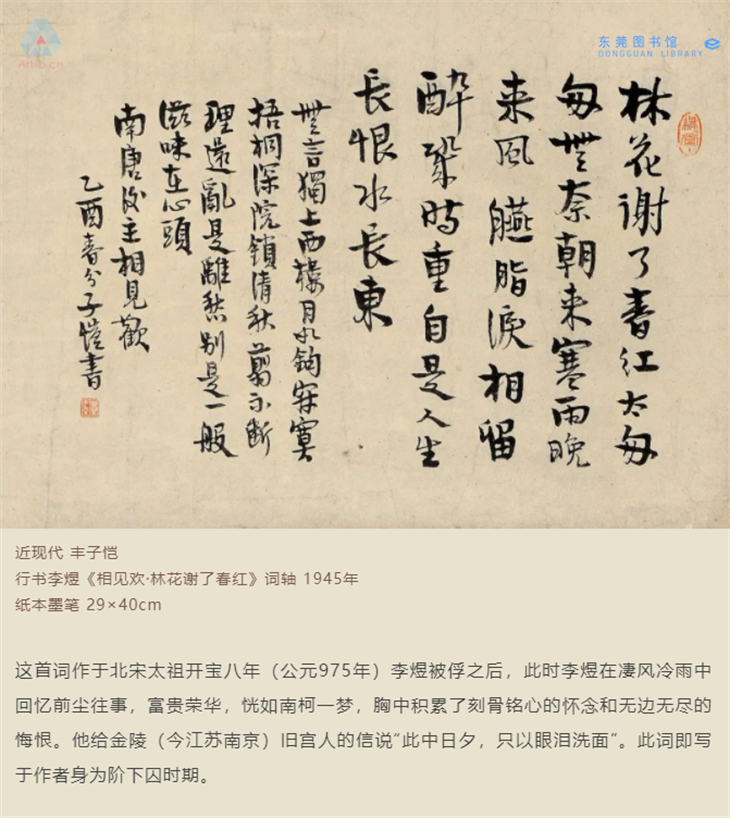 Artlib.cn
东莞图书馆
DONGGUAN LIBRARY
林花謝了春红太匆
匆無奈朝来寒雨晚
来風臙脂淚相留
醉幾時重自是人生
長恨水長東
無言獨上西樓月如鈎寂寞
梧桐深院鎖清秋翦不断
理還亂是離愁别是一般
滋味在心頭
南唐後主相見歡
乙酉春分子愷書
近现代 丰子恺
行书李煜《相见欢·林花谢了春红》词轴 1945年
纸本墨笔 29×40cm
这首词作于北宋太祖开宝八年（公元975年）李煜被俘之后，此时李煜在凄风冷雨中
回忆前尘往事，富贵荣华，恍如南柯一梦，胸中积累了刻骨铭心的怀念和无边无尽的
悔恨。他给金陵（今江苏南京）旧宫人的信说“此中日夕，只以眼泪洗面”。此词即写
于作者身为阶下囚时期。